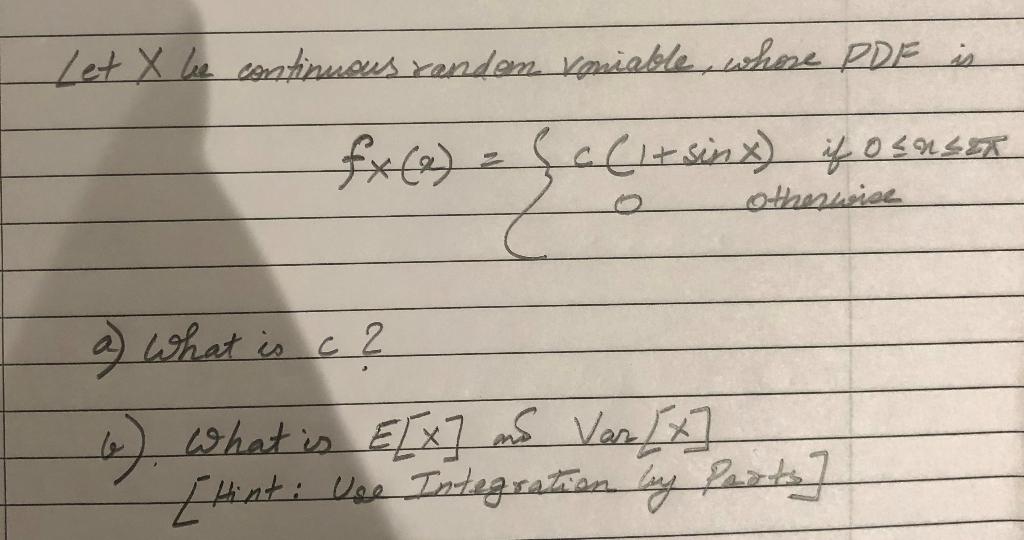 Let X be continuous random variable, whose PDF is
fx(x) = { c(1+sinx) if 0≤x≤2π
0 otherwise
a) What is c?
b). What is E[X] and Var[X]
[Hint: Use Integration by Parts]